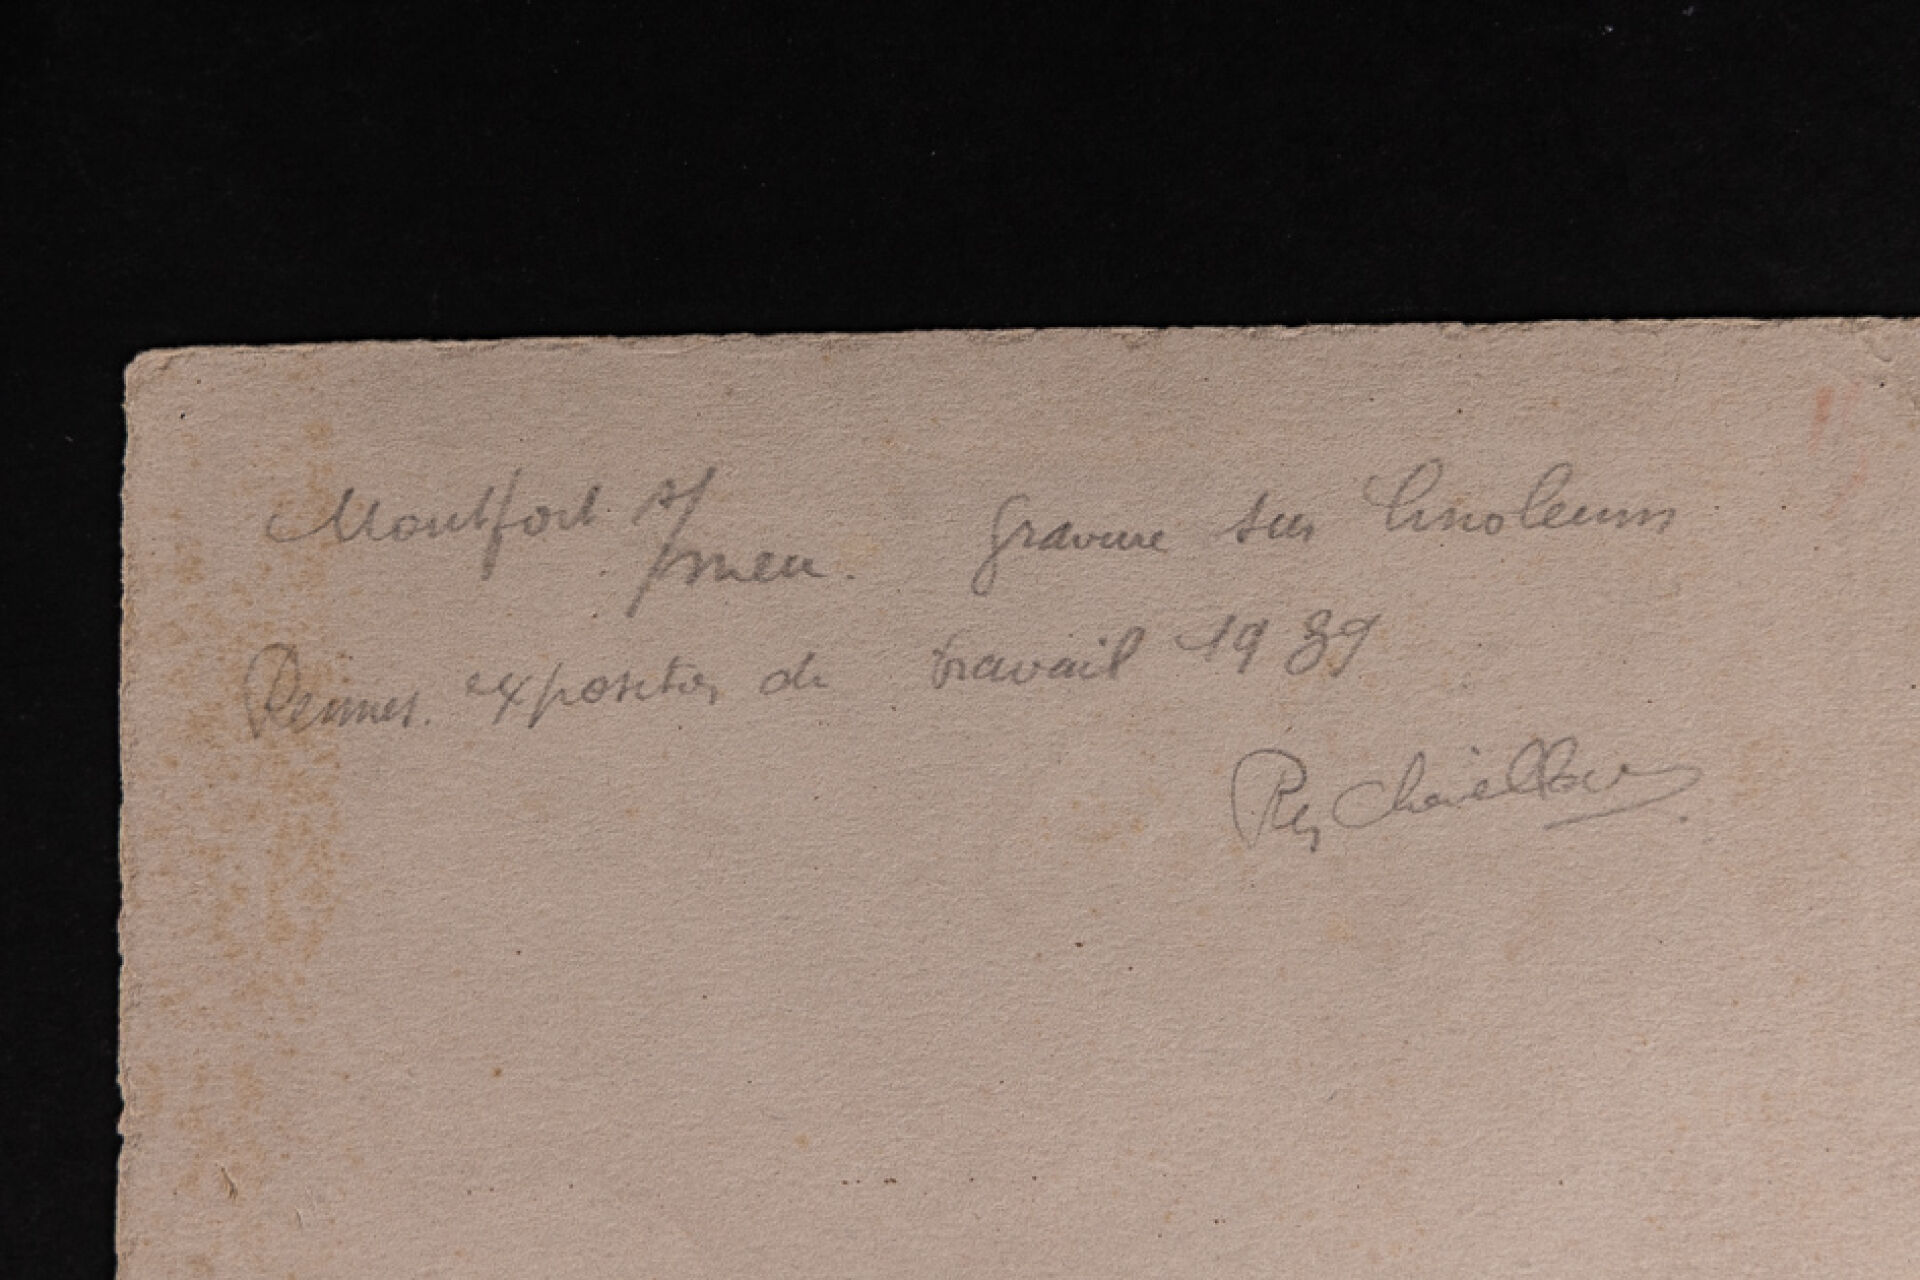 Montfort s/ meu. gravure sur linoleum
Rennes. exposition de travail 1939